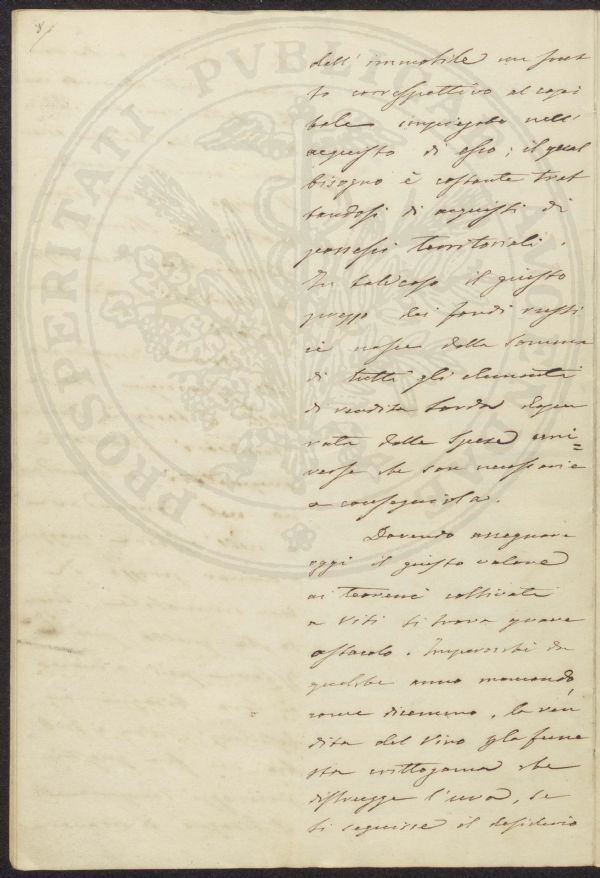 dell'immobile un frut
to correspettivo al capi
tale impiegato nell'
acquisto di esso; il qual
bisogno è costante trat
tandosi di acquisti di
possessi territoriali.
In tal caso il giusto
prezzo dei fondi rusti
ci nasce dalla somma
di tutti gli elementi
di rendita lorda depu
rata dalle spese uni
verse che son necessarie
a conseguirla.
Dovendo assegnare
oggi il giusto valore
ai terreni coltivati
a viti si trova grave
ostacolo. Imperocchè da
qualche anno mancando,
come dicemmo, la ven
dita del vino per la fune
sta crittogama che
distrugge l'uva, se
si seguisse il desiderio
PROSPERITATI PVBLICAE AVGENDAE